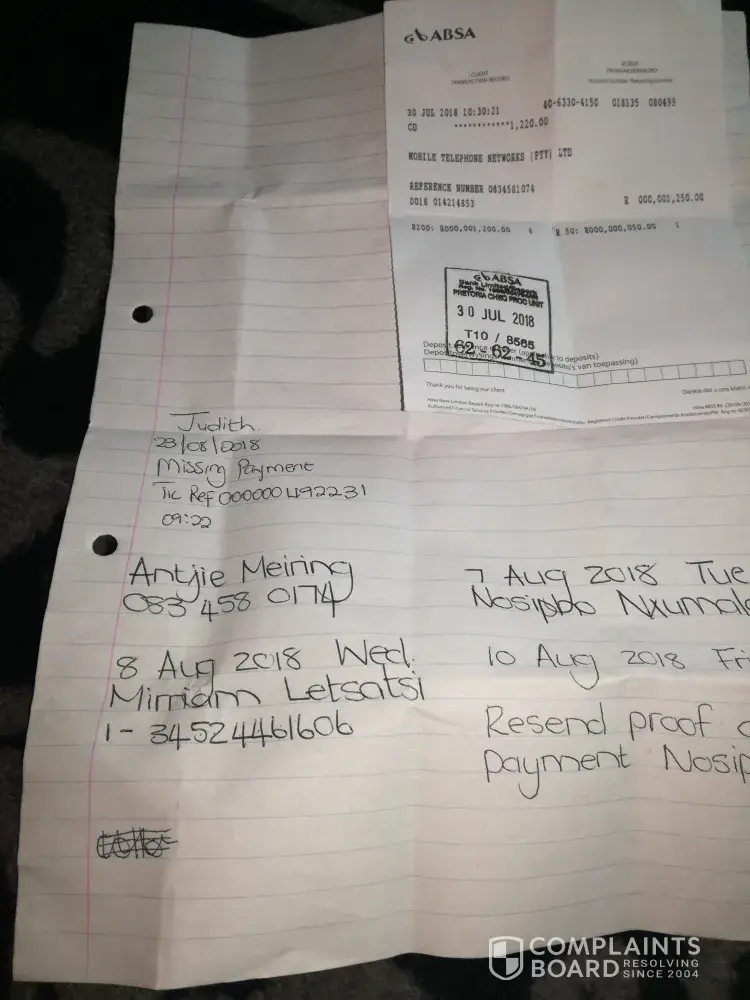 ABSA
CLIENT
TRANSACTION RECORD
30 JUL 2018 10:30:21 40-6330-4150 018135 080499
CD ************1,220.00
MOBILE TELEPHONE NETWORKS (PTY) LTD
REFERENCE NUMBER 0834581074
0018 014214853 R 000,001,250.00
R200: R000,001,200.00 6 R 50: R000,000,050.00 1
ABSA
PRETORIA CHEQ PROC UNIT
30 JUL 2018
T10 / 8565
62 62 45
Thank you for being our client
Judith
23/08/2018
Missing Payment
Tic Ref 000000492231
09:22
Antjie Meiring
083 458 0174
7 Aug 2018 Tue
Nosipho Nxumalo
8 Aug 2018 Wed.
Mirriam Letsatsi
1- 34524461606
10 Aug 2018 Fri
Resend proof o
payment Nosip
COMPLAINTS
BOARD RESOLVING
SINCE 2004